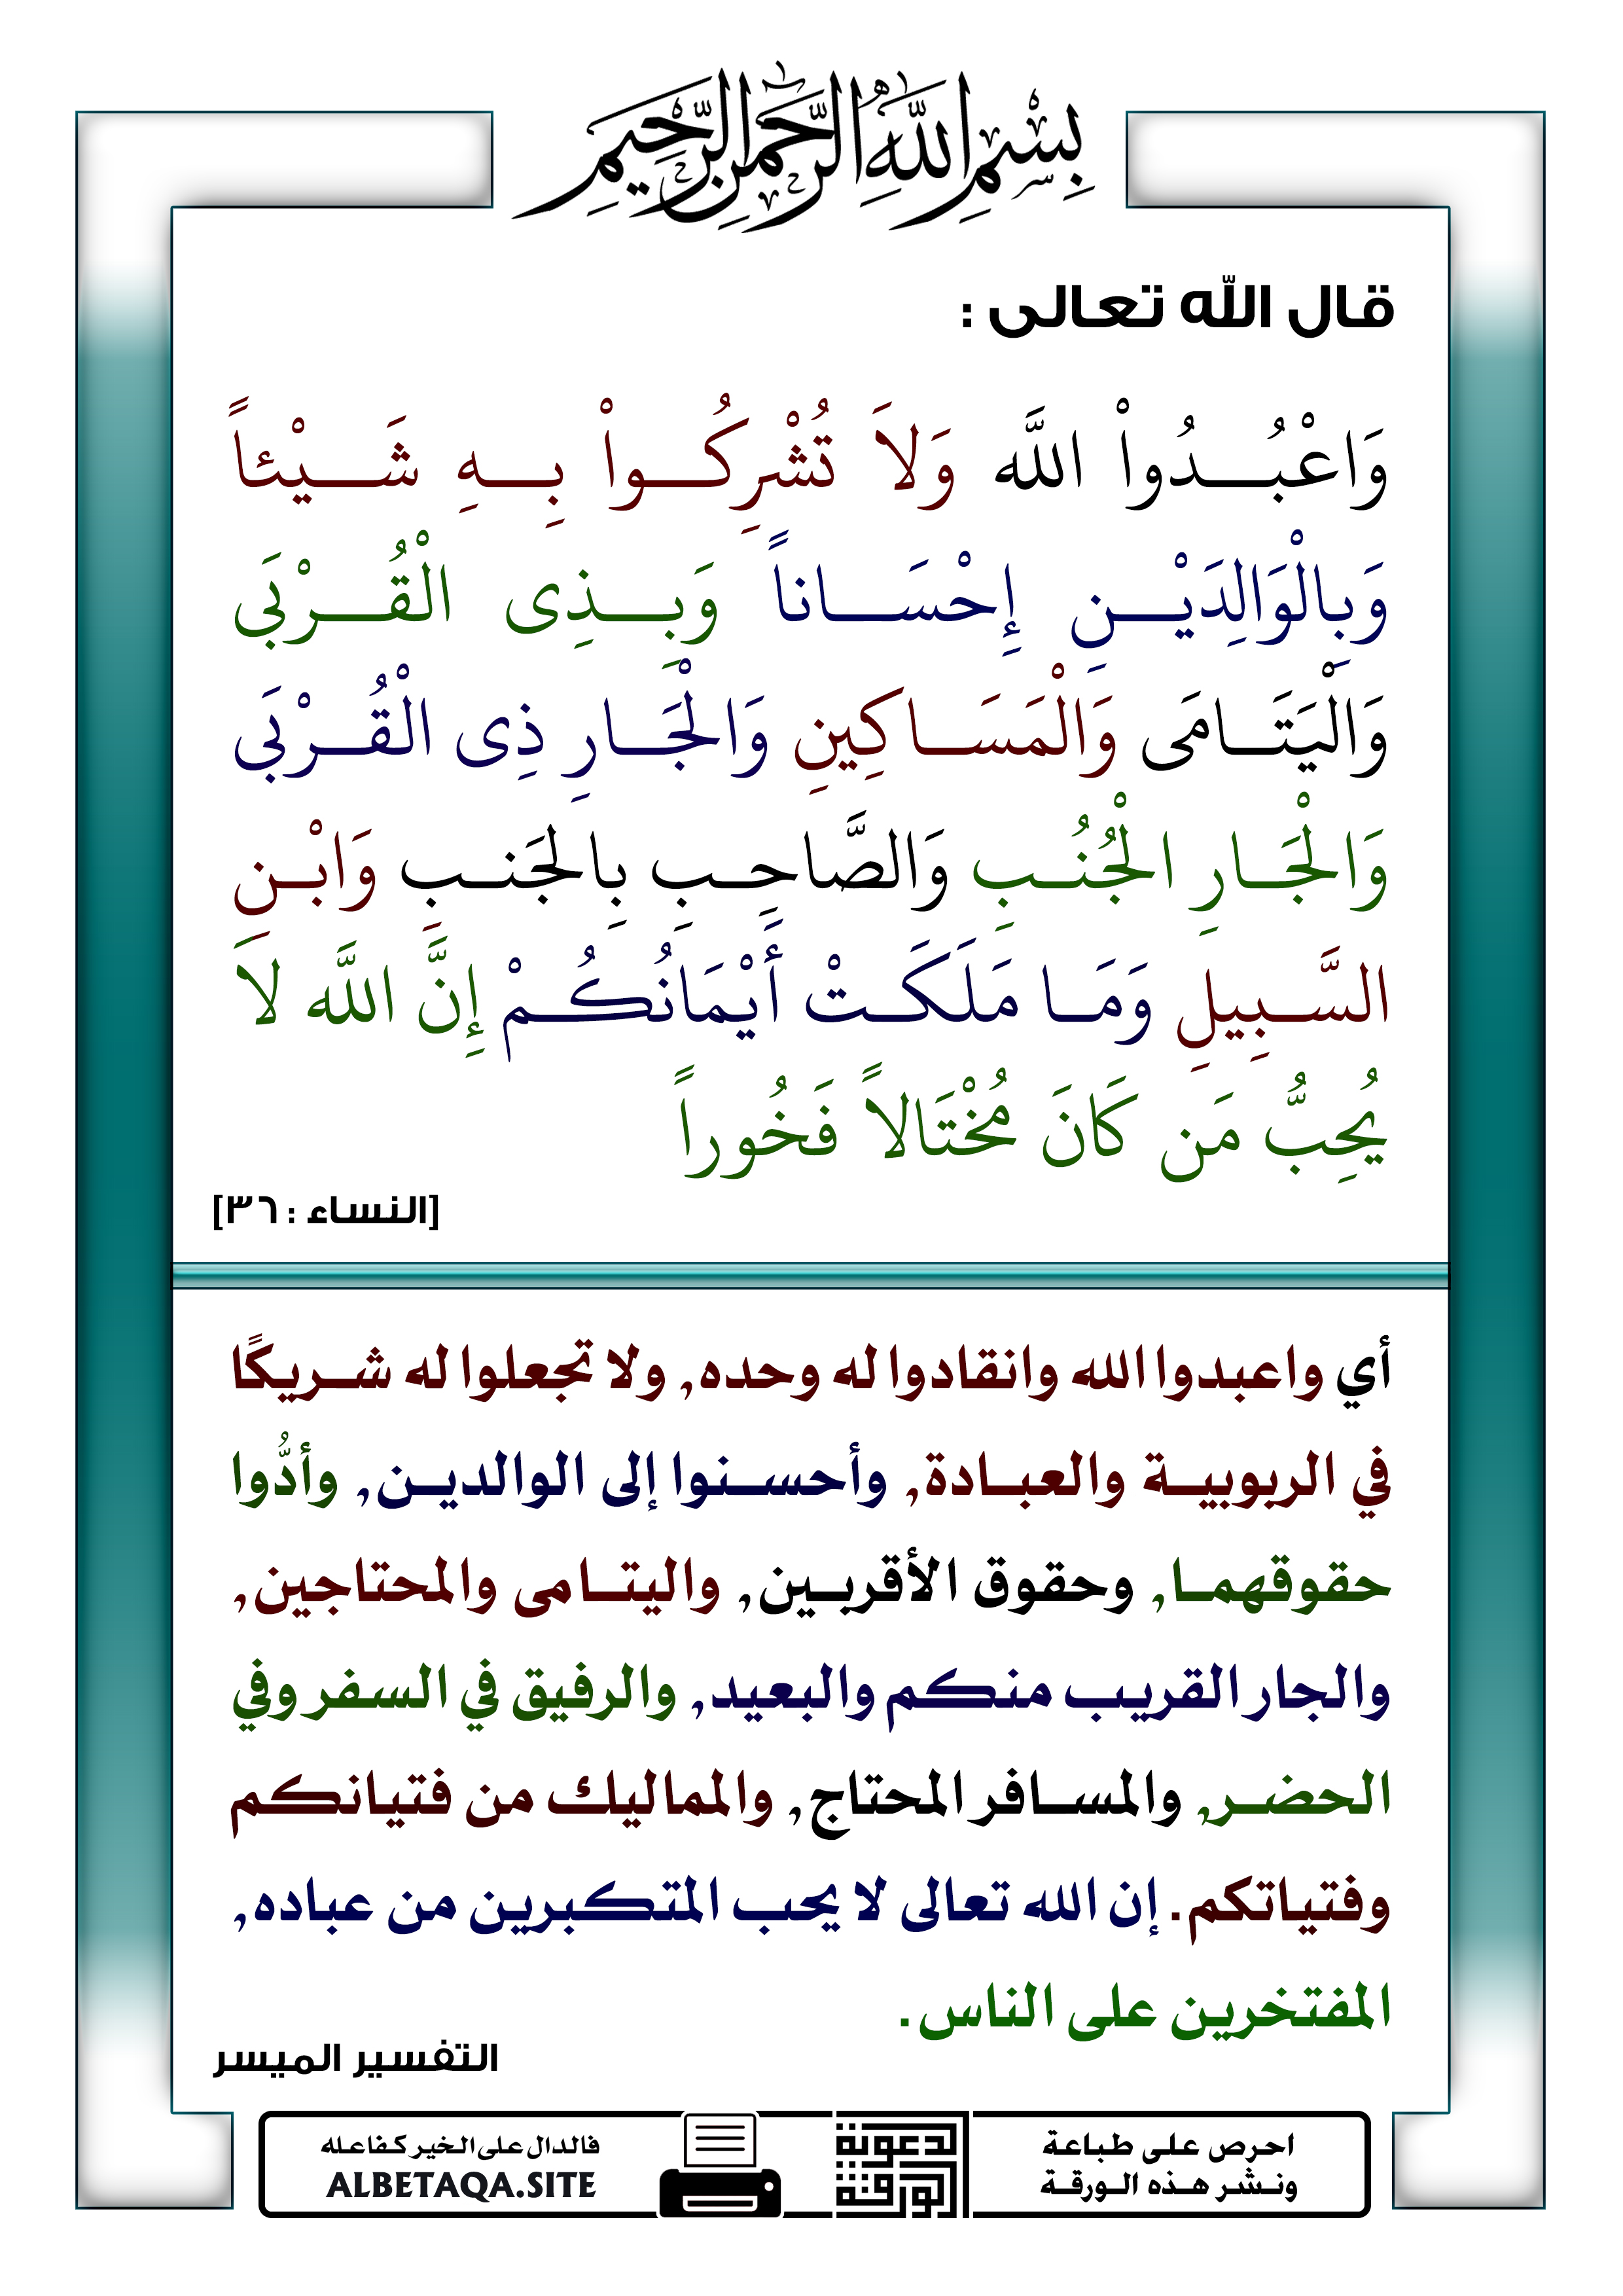 بِسْمِ اللَّهِ الرَّحْمَٰنِ الرَّحِيمِ
قال الله تعالى :
وَاعْبُدُواْ اللَّه وَلاَ تُشْرِكُواْ بِهِ شَيْئاً
وَبِالْوَالِدَيْنِ إِحْسَاناً وَبِذِى الْقُرْبَى
وَالْيَتَامَى وَالْمَسَاكِينِ وَالْجَارِ ذِى الْقُرْبَى
وَالْجَارِ الْجُنُبِ وَالصَّاحِبِ بِالجَنبِ وَابْنِ
السَّبِيلِ وَمَا مَلَكَتْ أَيْمَانُكُمْ إِنَّ اللَّه لاَ
يُحِبُّ مَن كَانَ مُخْتَالاً فَخُوراً
[النساء : ٣٦]
أي واعبدوا الله وانقادوا له وحده, ولا تجعلوا له شريكًا
في الربوبية والعبادة, وأحسنوا إلى الوالدين, وأدُّوا
حقوقهما, وحقوق الأقربين, واليتامى والمحتاجين,
والجار القريب منكم والبعيد, والرفيق في السفر وفي
الحضر, والمسافر المحتاج, والمماليك من فتيانكم
وفتياتكم. إن الله تعالى لا يحب المتكبرين من عباده,
المفتخرين على الناس.
التفسير الميسر
احرص على طباعة
ونشر هذه الورقة
الورقة
الدعوية
فالدال على الخير كفاعله
ALBETAQA.SITE